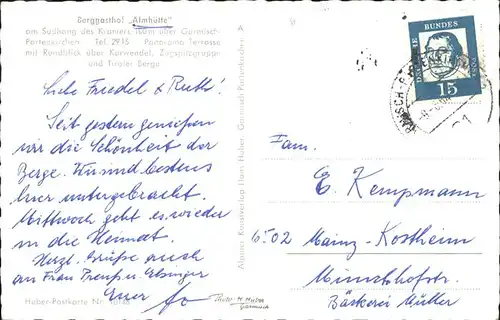 Berggasthof „Almhütte"
am Südhang des Kramers, 180m über Garmisch-
Partenkirchen Tel. 2915 Panorama Terrasse
mit Rundblick über Karwendel, Zugspitzgruppe
und Tiroler Berge
Liebe Friedel & Ruth!
Seit gestern genießen
wir die Schönheit der
Berge. Wir sind bestens
hier untergebracht.
Mittwoch geht es wieder
in die Heimat.
Herzl. Grüße auch
an Frau Preuß u. Ebsinger
Euer
Huber-Postkarte Nr.
Photo H. Huber
Garmisch
Alpiner Kunstverlag Hans Huber Garmisch-Partenkirchen A
DEUTSCHE BUNDESPOST
15
Fam.
E. Kempmann
6502 Mainz-Kostheim
Münchhofstr.
Bäckerei Müller